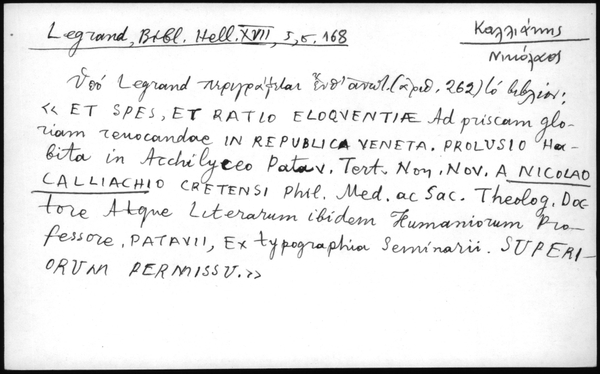 Legrand, Bibl. Hell. XVII, 5, σ. 168
Καλλιάκης
Νικόλαος
Ὑπό Legrand περιγράφεται ἔνθ' ἀνωτ. (ἀριθ. 262) τό βιβλίον:
« ET SPES, ET RATIO ELOQVENTIÆ Ad priscam glo-
riam revocandae IN REPUBLICA VENETA. PROLUSIO Ha-
bita in Archilyceo Patav. Tert. Non. Nov. A NICOLAO
CALLIACHIO CRETENSI Phil. Med. ac Sac. Theolog. Doc-
tore Atque Literarum ibidem Humaniorum Pro-
fessore. PATAVII, Ex typographia Seminarii. SUPERI-
ORUM PERMISSU.»